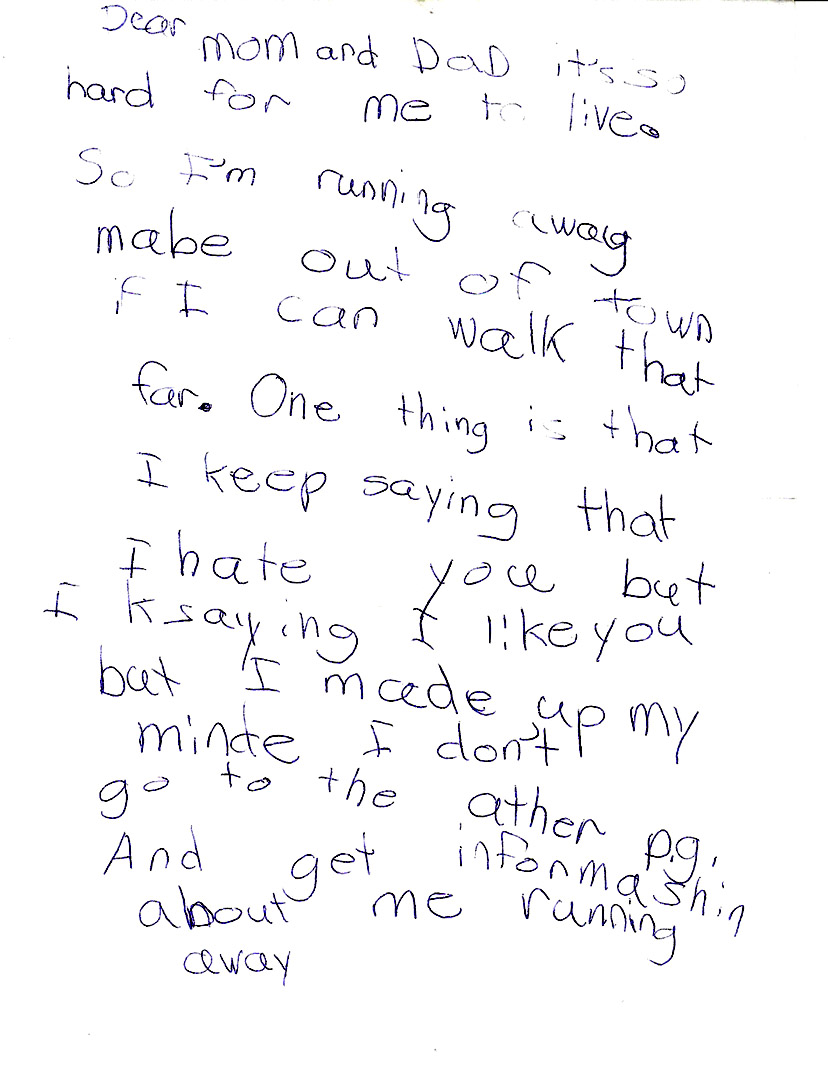 Dear
mom and DaD it's so
hard for me to live.
So I'm running away
mabe out of town
if I can walk that
far. One thing is that
I keep saying that
I hate you but
I k saying I like you
but I made up my
minde I don't
go to the ather p.g.
And get informashin
about me running
away